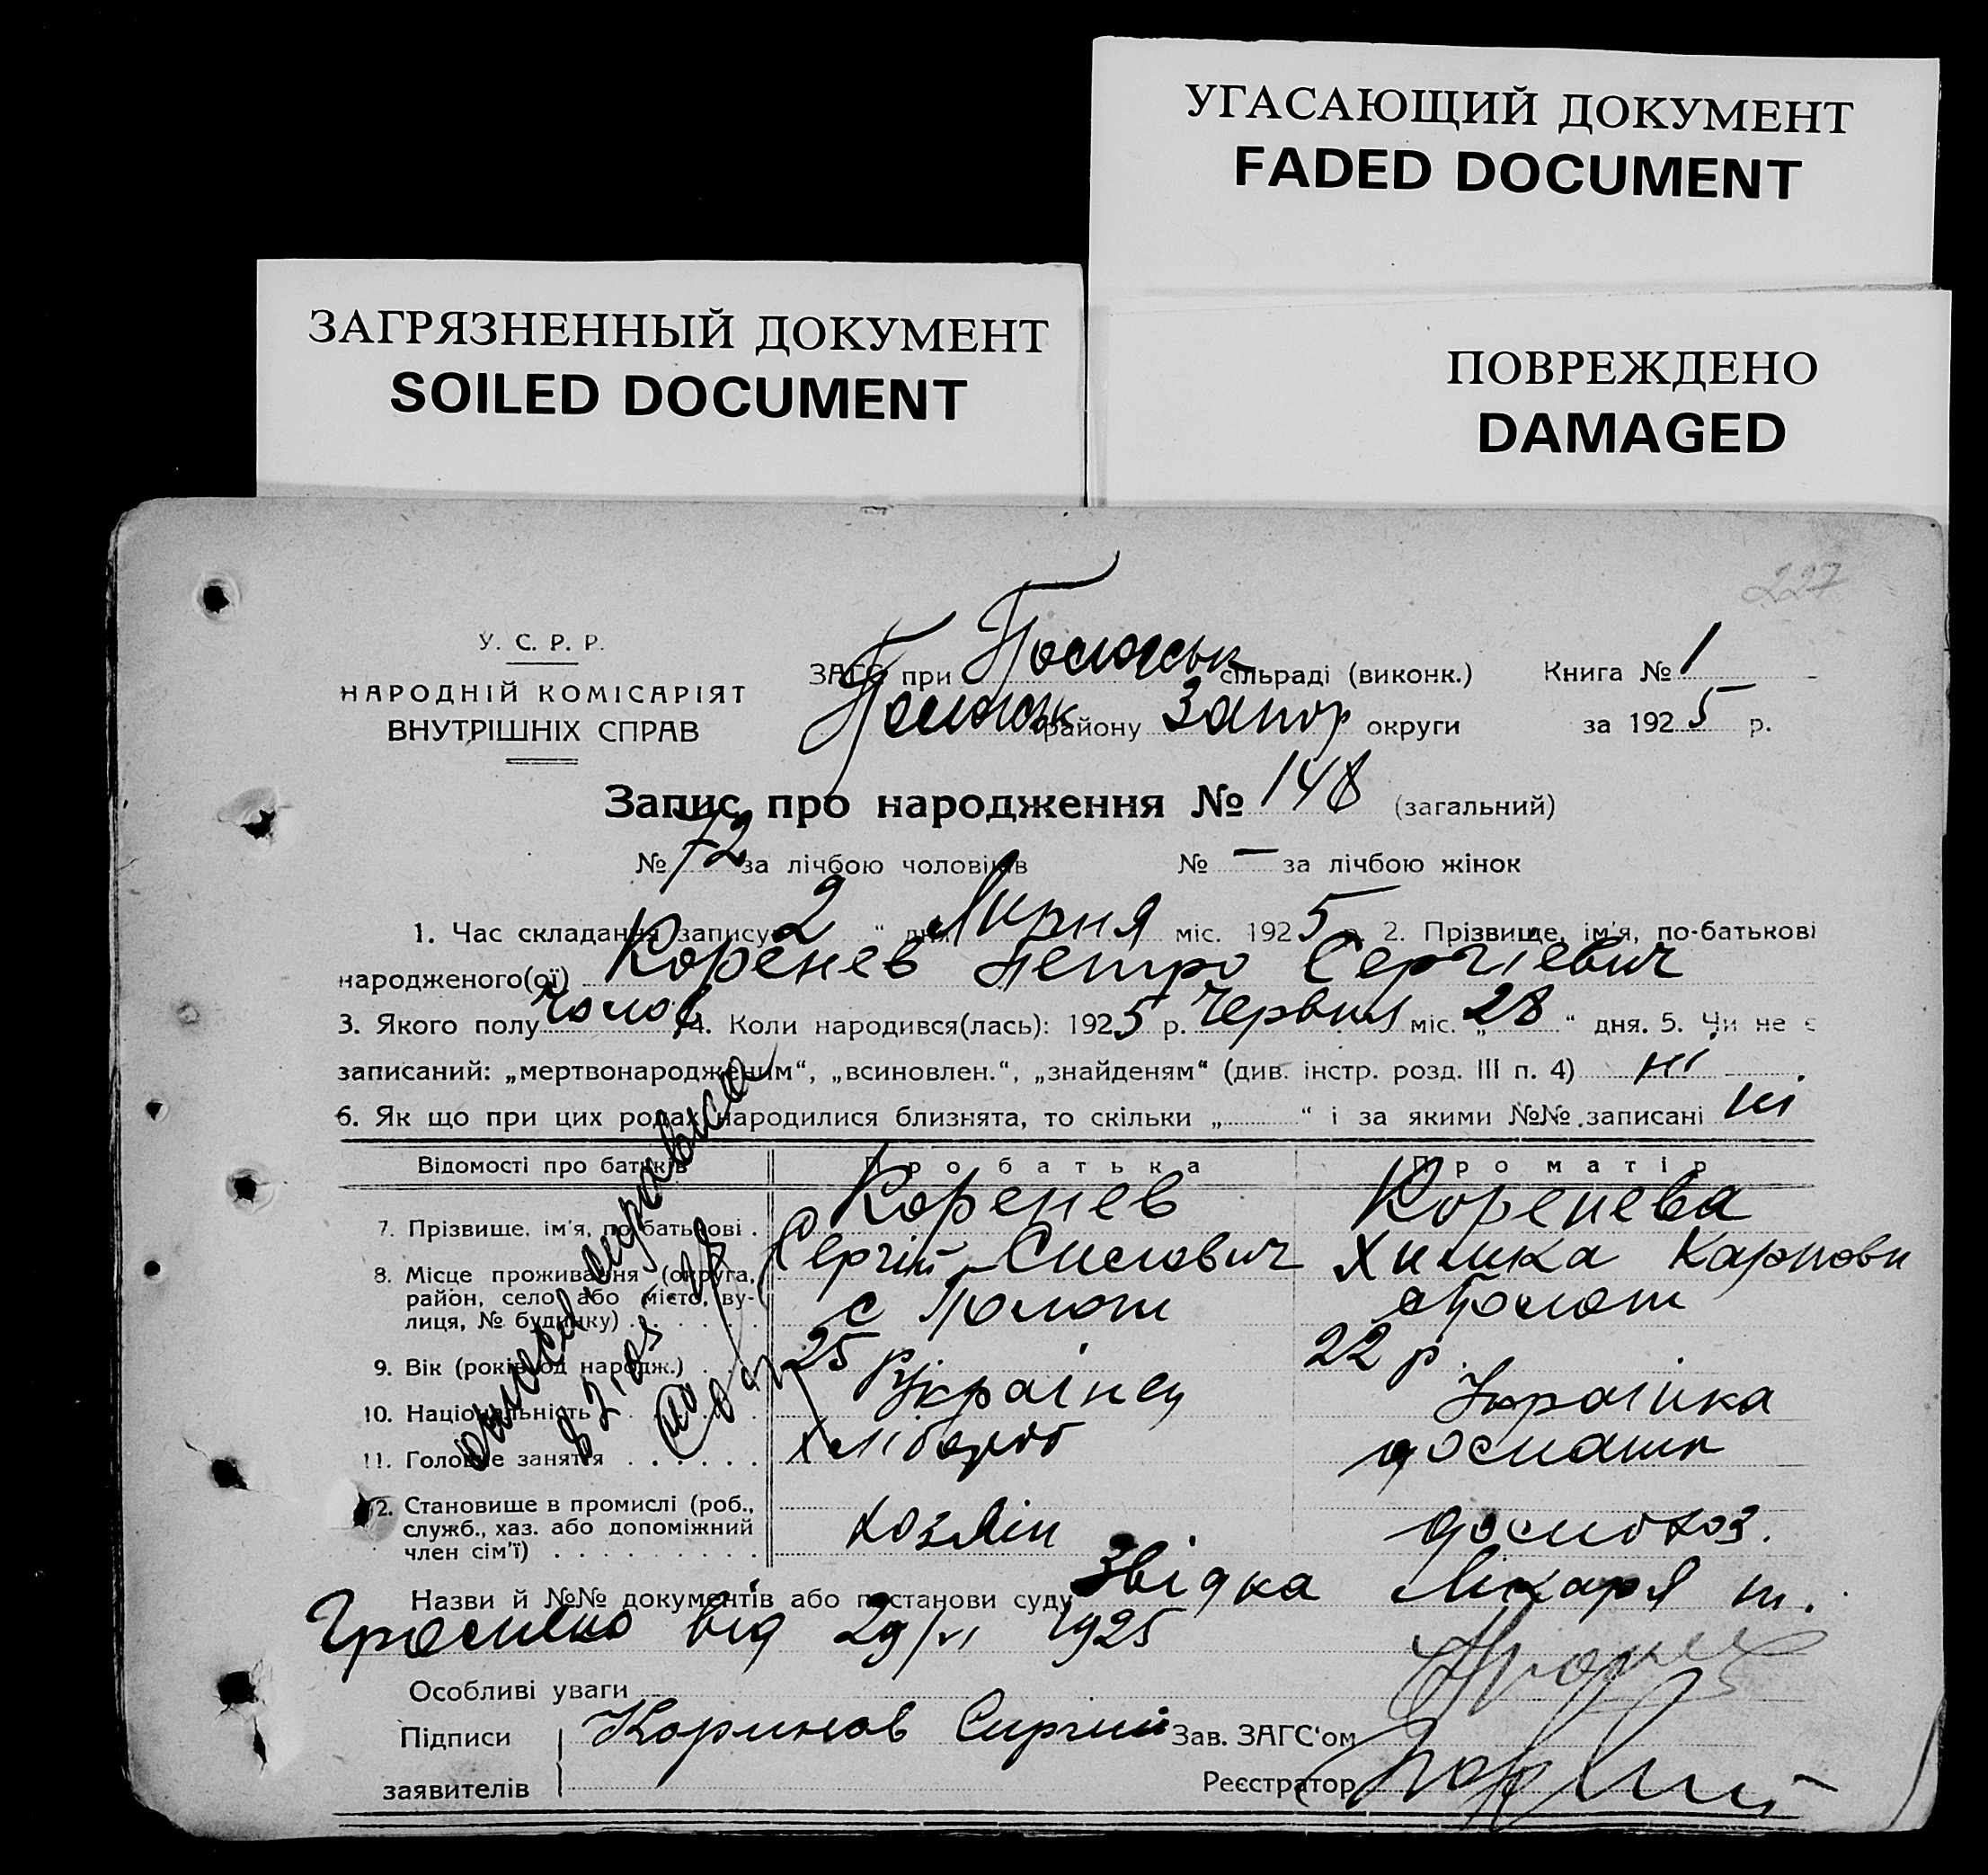 УГАСАЮЩИЙ ДОКУМЕНТ
FADED DOCUMENT
ЗАГРЯЗНЕННЫЙ ДОКУМЕНТ
SOILED DOCUMENT
ПОВРЕЖДЕНО
DAMAGED
227
У. С. Р. Р.
НАРОДНІЙ КОМІСАРІЯТ
ВНУТРІШНІХ СПРАВ
ЗАГС при сільраді (виконк.) Книга № 1
району Запор округи за 1925 р.
Запис про народження № 148 (загальний)
№ 72 за лічбою чоловіків № — за лічбою жінок
1. Час складання запису 2 " дня Липня міс. 1925 р. 2. Прізвище, ім'я, по-батькові
народженого(ої) Коренев Петро Сергіевич
3. Якого полу чолов 4. Коли народився(лась): 1925 р. Червня міс. „ 28 " дня. 5. Чи не є
записаний: „мертвонародженим“, „всиновлен.“, „знайденям“ (див. інстр. розд. III п. 4) ні
6. Як що при цих родах народилися близнята, то скільки „ “ і за якими №№ записані ні
Відомості про батьків Про батька Про матір
7. Прізвище, ім'я, по батькові . Коренев Коренева
Сергій Химка Карповн
8. Місце проживання (округа, район, село або місто, вулиця, № будинку) . . . . . . с Пологи с Пологи
9. Вік (років од народж.) . . 25 22 р.
10. Національність . . . . . Українец Українка
11. Головне заняття . . . . . . хлібороб
12. Становище в промислі (роб., служб., хаз. або допоміжний член сім'ї) . . . . . . . . .
Назви й №№ документів або постанови суду Звідка Лікаря
від 29/VI 1925
Особливі уваги
Підписи Зав. ЗАГС'ом
заявителів Реєстратор